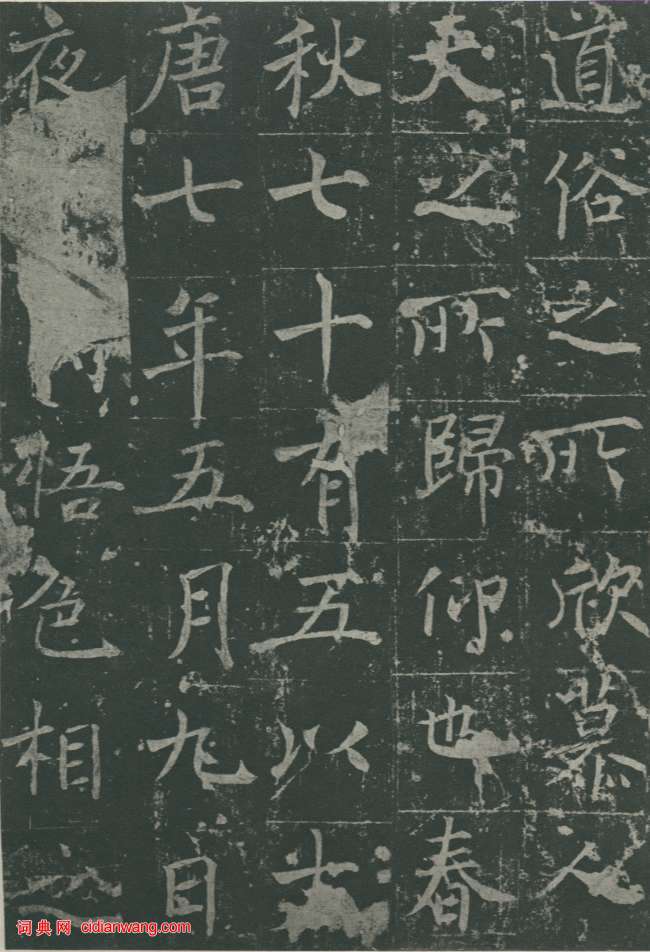 道俗之所欣慕人
天之所歸仰也春
秋七十有五以大
唐七年五月九自
夜悟色相之
词典网 cidianwang.com